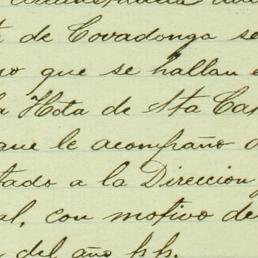 de Covadonga se
que se hallan
Hota de Sta Ca
que le acompaño
tado a la Direccion
al, con motivo de
del año pp.